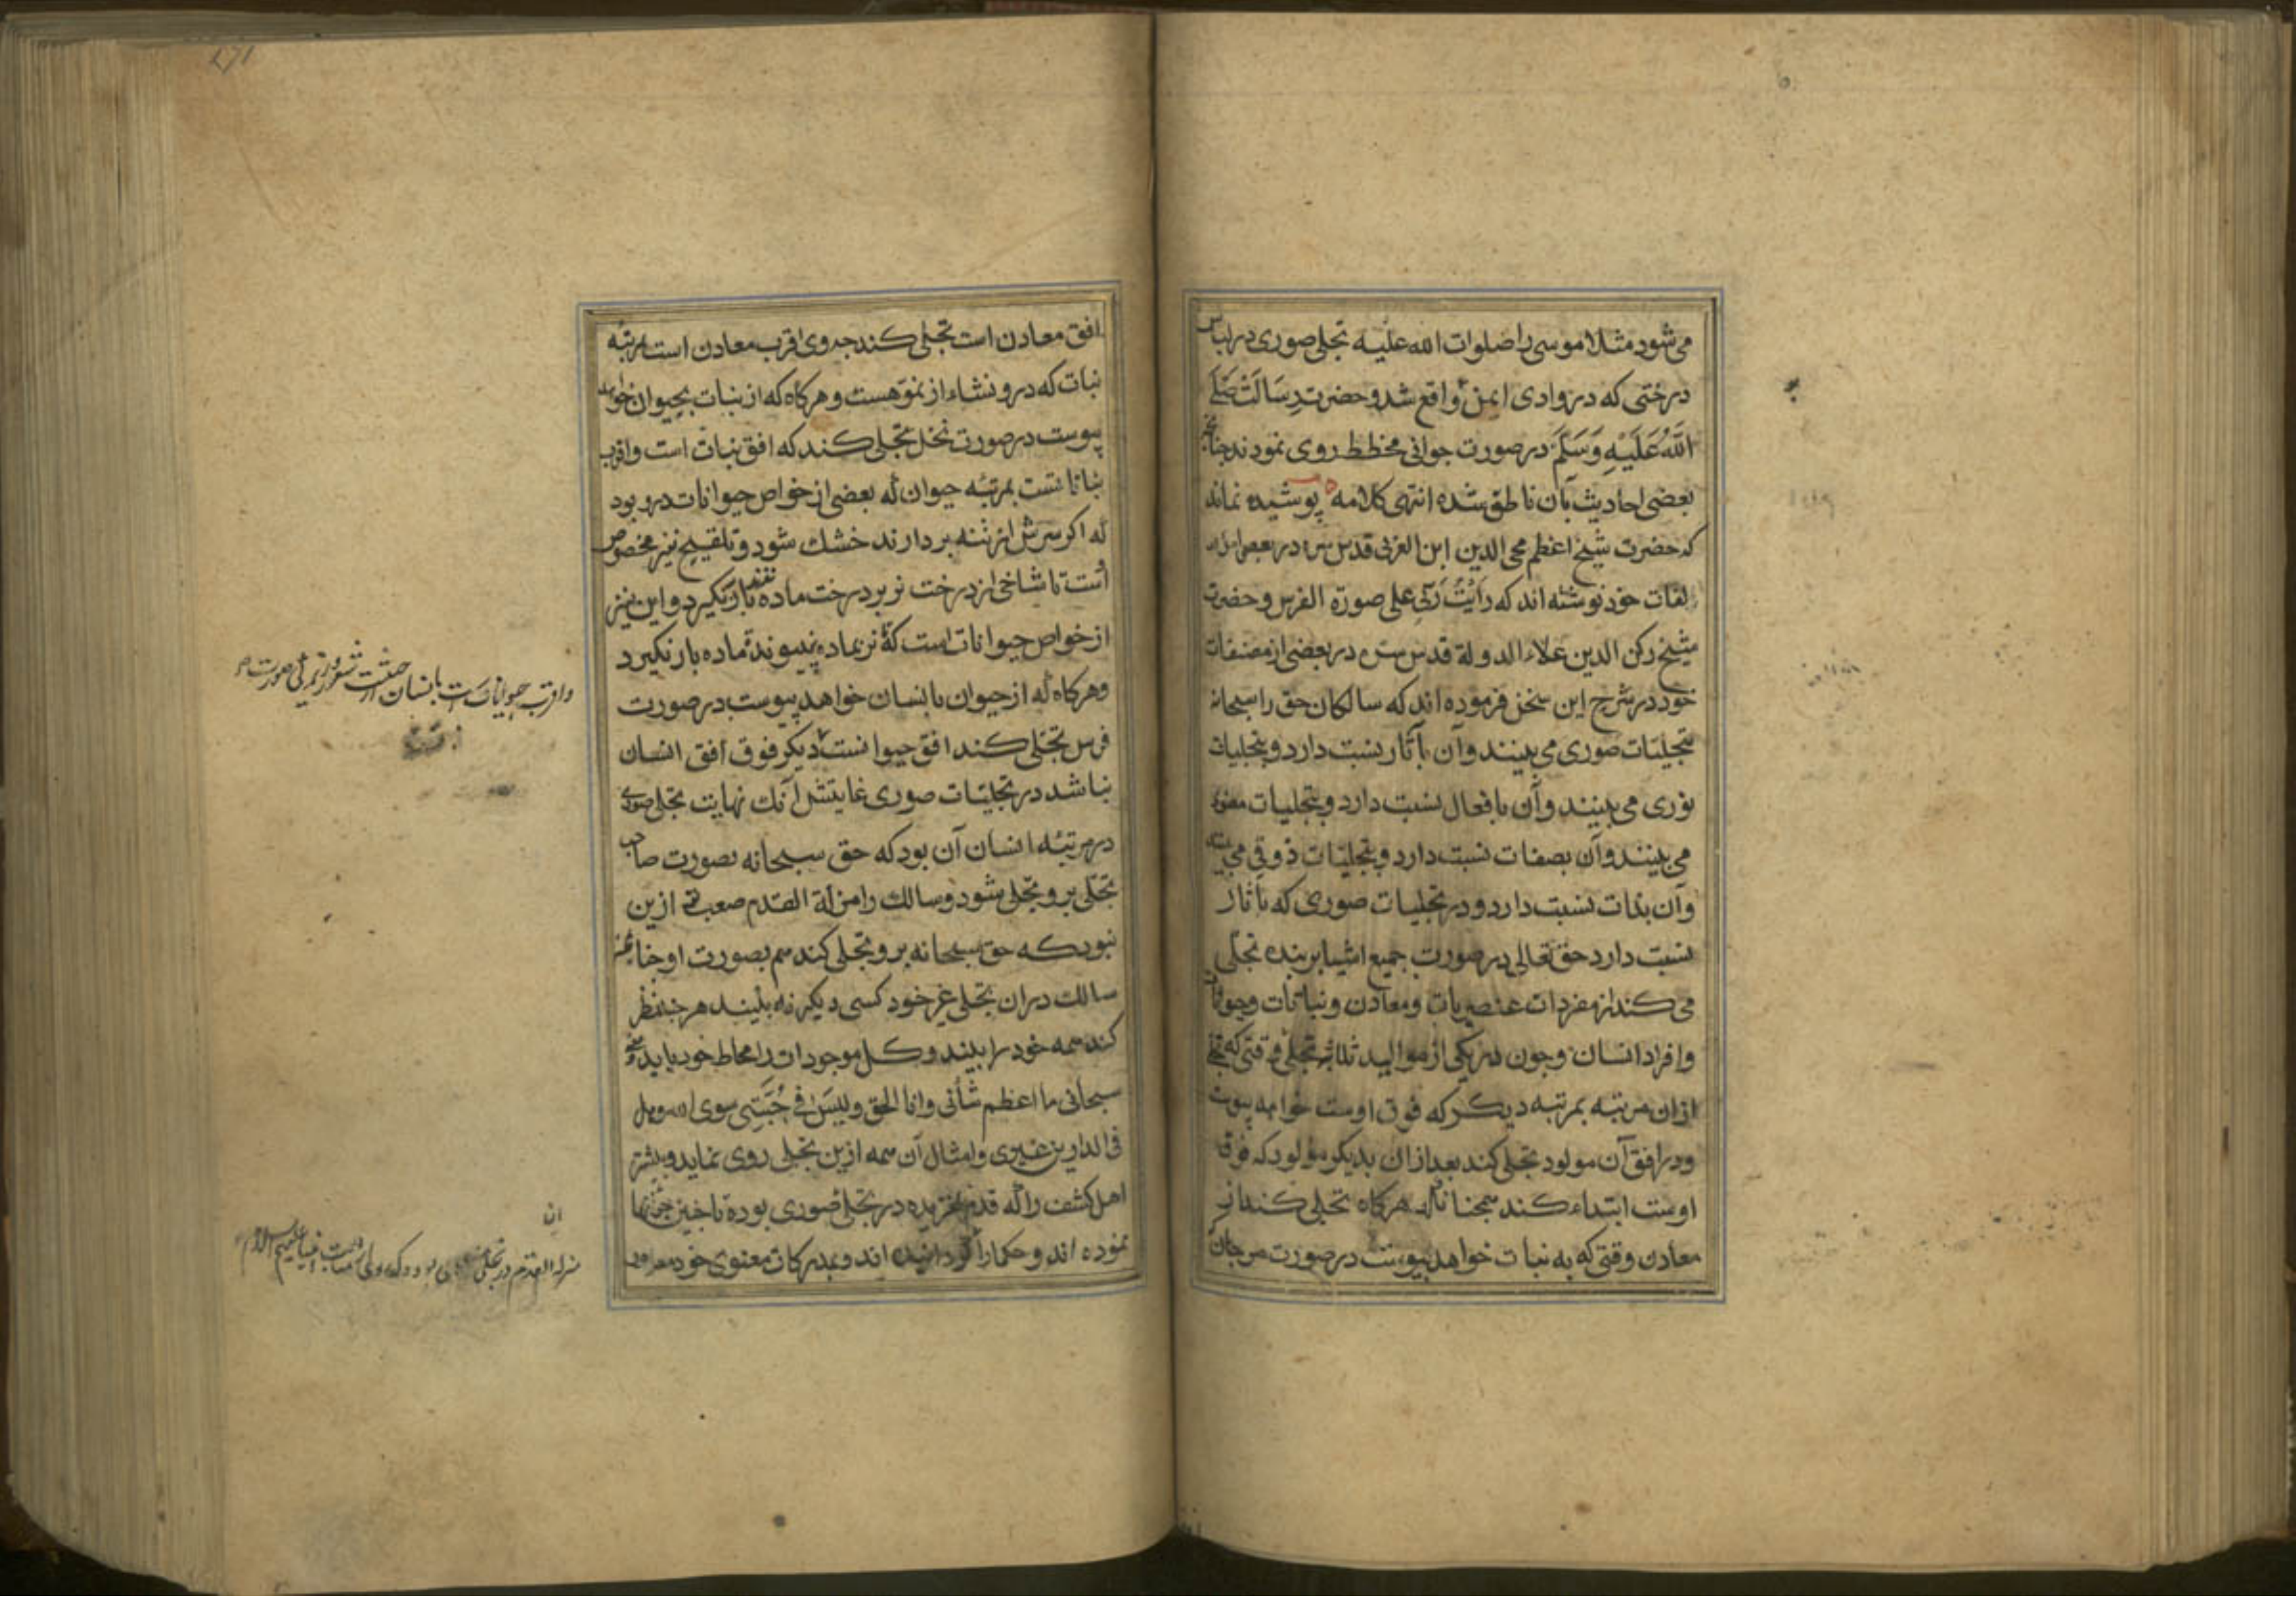 می شود مثلا موسی را صلوات الله علیه تجلی صوری در لباس
درختی که در وادی ایمن واقع شد و حضرت رسالت صلی
الله علیه وسلم در صورت جوانی مخطط روی نمودند چنانچه
بعضی احادیث بآن ناطق شده انتهی کلامه پوشیده نماند
که حضرت شیخ اعظم محی الدین ابن العربی قدس سره در بعضی
لفات خود نوشته اند که رأیت ربی علی صورة الفرس و حضرت
شیخ رکن الدین علاء الدولة قدس سره در بعضی از مصنفات
خود در شرح این سخن فرموده اند که سالکان حق را سبحانه
بتجلیات صوری می بینند وآن بآثار نسبت دارد و بتجلیات
نوری می بینند وآن بافعال نسبت دارد و بتجلیات معنوی
می بینند وآن بصفات نسبت دارد و بتجلیات ذوقی می بینند
وآن بذات نسبت دارد و در تجلیات صوری که بآثار
نسبت دارد حق تعالی در صورت جمیع اشیا بر بنده تجلی
می کند از مفردات عنصریات و معادن و نباتات و حیوانات
وافراد انسان و چون در یکی از موالید ثلاثه تجلی وقتی که
ازان مرتبه بمرتبه دیکر که فوق اوست خواهد پیوست
ودر افق آن مولود تجلی کند بعد ازان بدیکر مولود که فوق
اوست ابتداء کند همچنانکه هرکاه تجلی کند از
معادن وقتی که به نبات خواهد پیوست در صورت مرجان که
افق معادن است تجلی کند چه وی اقرب معادن است بمرتبه
نبات که درو نشاء از نمو هست و هرکاه که از نبات بحیوان خواهد
پیوست در صورت نخل تجلی کند که افق نبات است و اقرب
نباتاتست بمرتبه حیوان که بعضی از خواص حیوانات درو بود
که اکر سرش از تنه بردارند خشک شود و تلقیح نیز مخصوص
اوست تا شاخی از درخت نر بر درخت ماده نفتد بار نکیرد و این نیز
از خواص حیوانات است که تا نر بماده نپیوندد ماده بار نکیرد
وهرکاه که از حیوان بانسان خواهد پیوست در صورت
فرس تجلی کند افق حیوانست دیکر فوق افق انسان
نباشد در تجلیات صوری غایتش آنک نهایت تجلی صوری
در مرتبه انسان آن بود که حق سبحانه بصورت صاحب
تجلی برو تجلی شود و سالک را مزلة القدم صعب تر ازین
نبود که حق سبحانه برو تجلی کند هم بصورت او چنانچه
سالک دران تجلی غیر خود کسی دیکر نه بیند هرچند نظر
کند همه خود را بیند و کل موجودات را محاط خود یابد
سبحانی ما اعظم شأنی وانا الحق ولیس فی جبتی سوی الله وهل
فی الدارین غیری وامثال آن همه ازین تجلی روی نماید و بیشتر
اهل کشف را که قدم لغزیده در تجلی صوری بوده تا چنین
نموده اند و حکما را اند و مدرکات معنوی خود
واقرب حیوانات است بانسان از حیثیت شعور
مزلة القدم در تجلی انبیا علیهم السلام